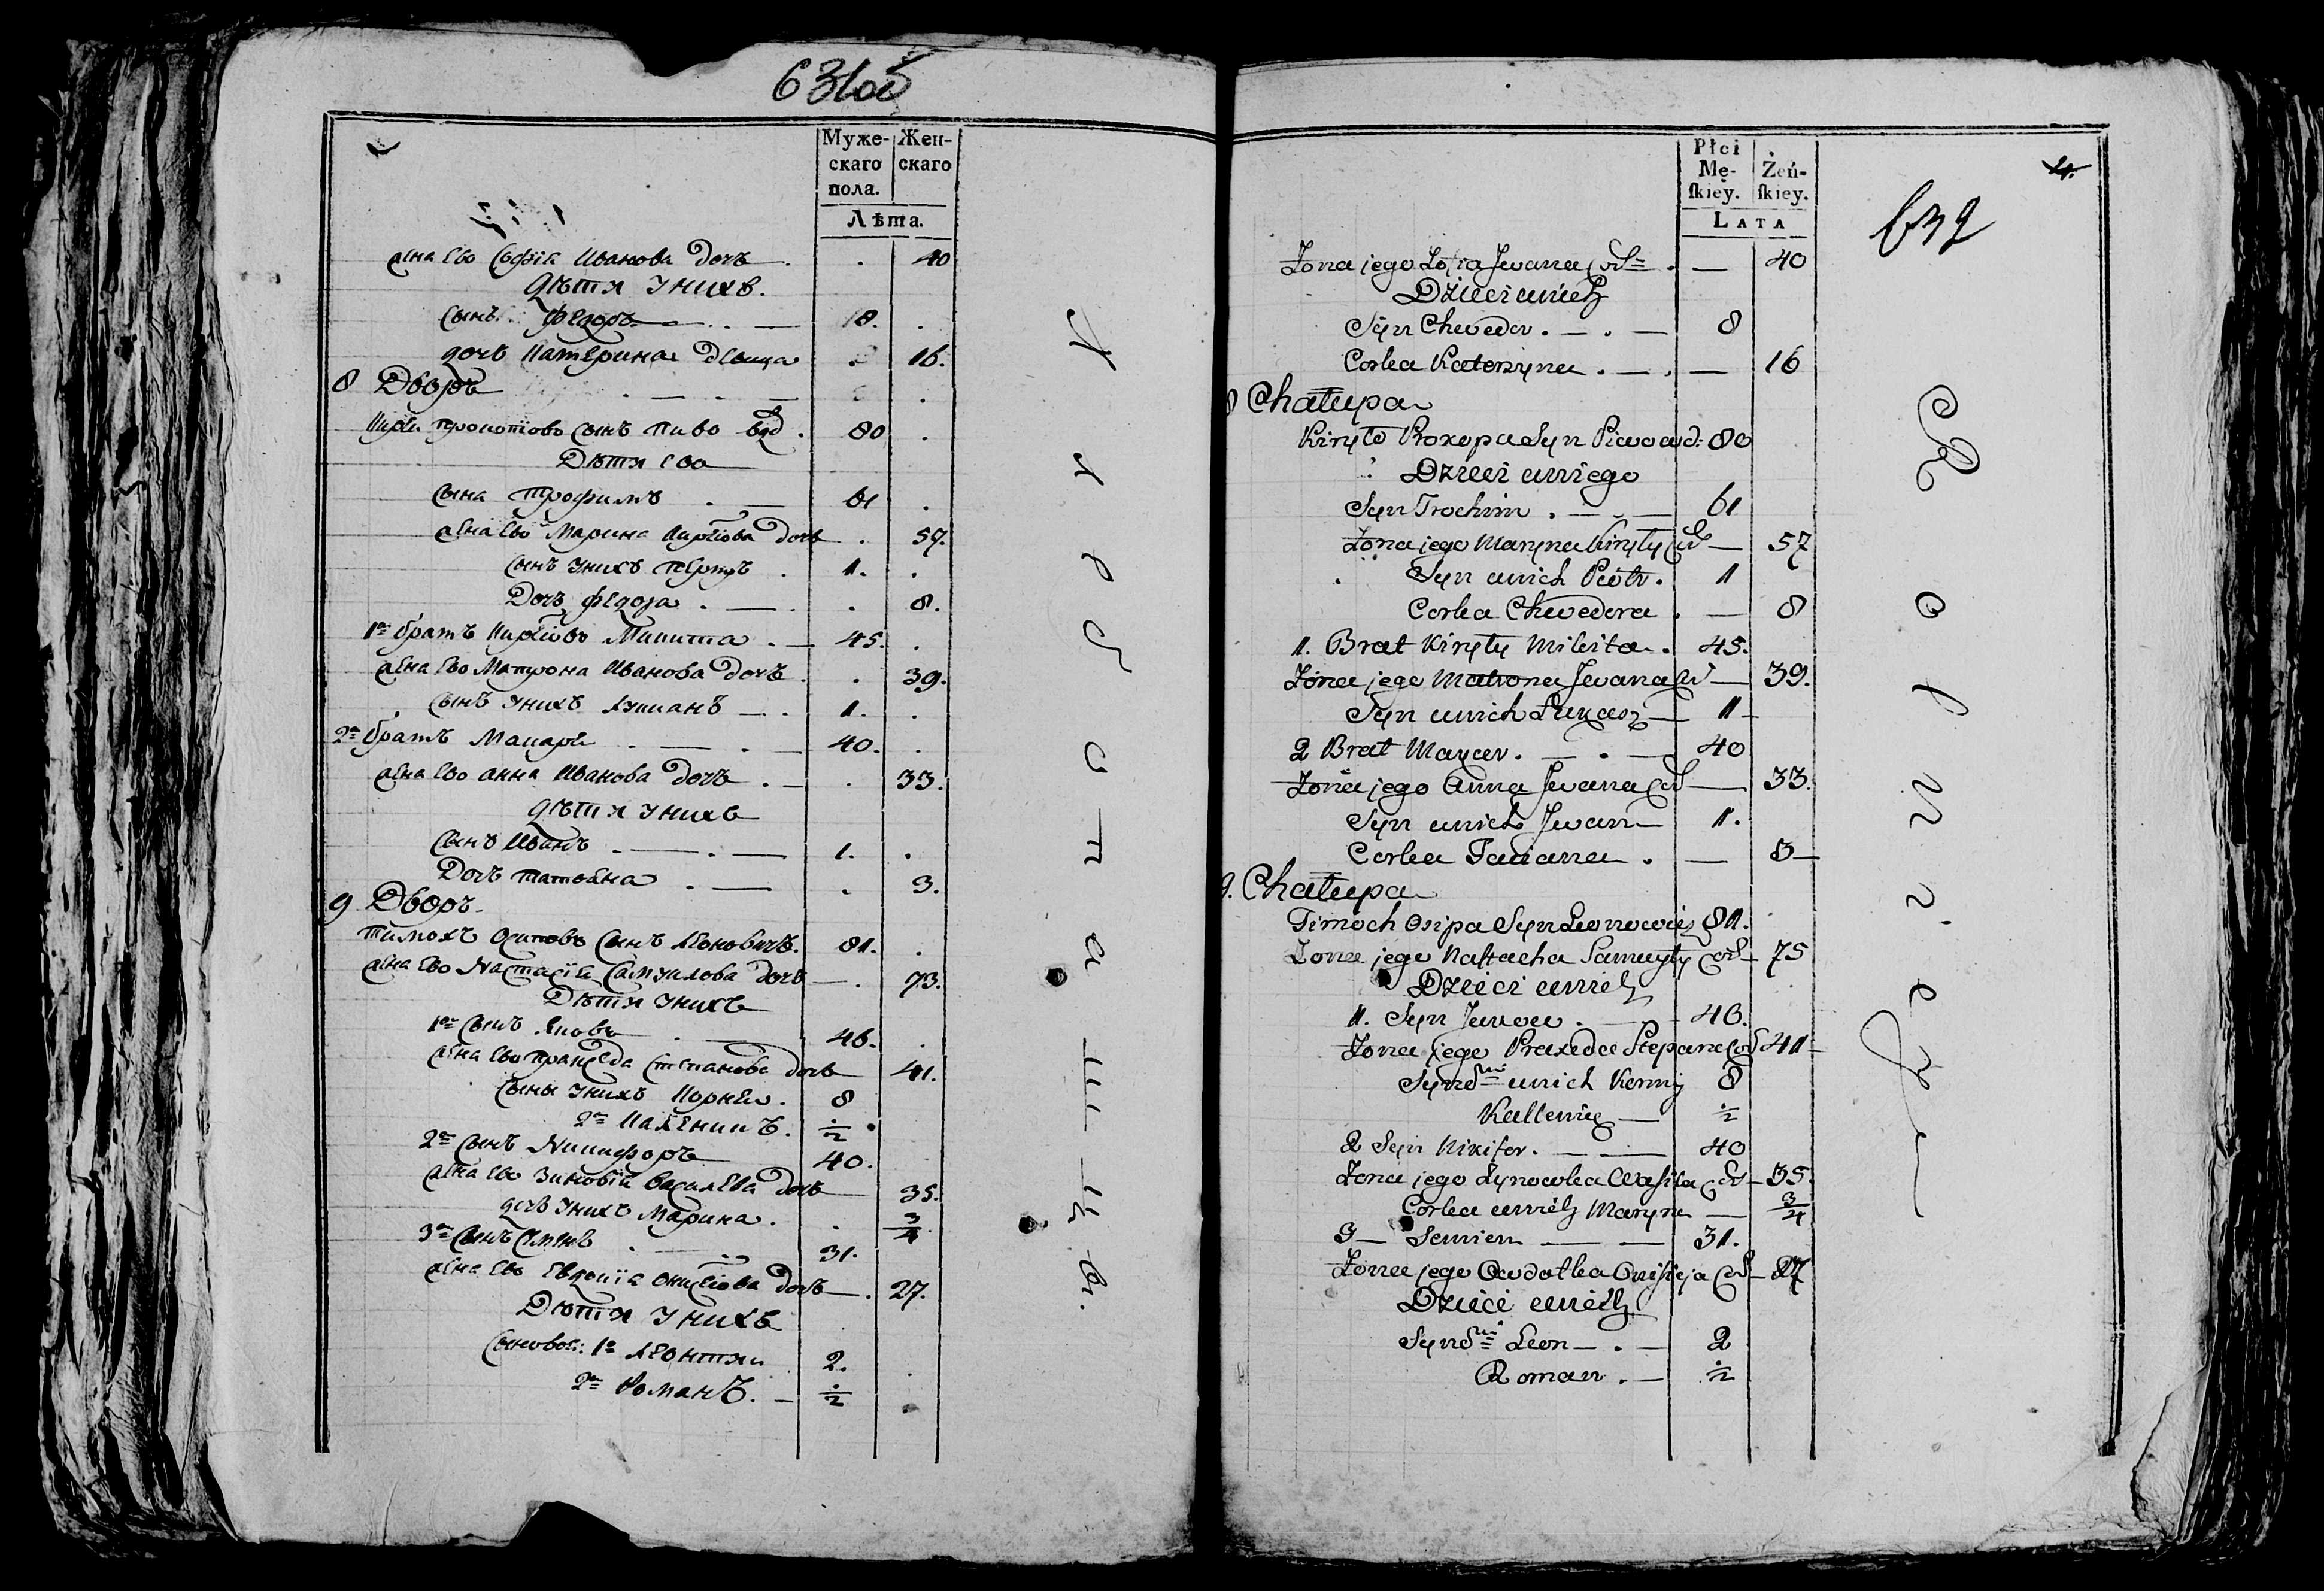 631об
Муже-
скаго
пола.
Жен-
скаго
Лѣта.
жена ево Софiя Иванова дочь . . 40
Дѣти у нихъ.
сынъ Федоръ 18.
дочь Катерина девица 16.
8 Дворъ
Прокопiовъ сынъ Пиво вдъ. 80
Дѣти ево
сынъ Трофимъ 61
жена ево Марина Кирилова дочь 57.
сынъ у нихъ Петръ 1.
Дочь Федора 8.
1й братъ Кириловъ Микита 45.
жена ево Матрона Иванова дочь 39.
сынъ у нихъ Лукианъ 1.
2й братъ Макаръ 40.
жена ево Анна Иванова дочь 33.
дѣти у нихъ
сынъ Иванъ 1.
Дочь Татьяна 3.
9 Дворъ
Тимохъ Осиповъ сынъ Леоновичъ. 81.
жена ево Настасiя Самуилова дочь 73.
Дѣти у нихъ
1й сынъ Яковъ 46.
жена ево Пракседа Степанова дочь 41.
сыны у нихъ Корней. 8
2й Каленикъ. ½
2й сынъ Никифоръ 40.
жена ево Зиновiя Василева дочь 35.
дочь у нихъ Марина. ¾
3й сынъ Семенъ 31.
жена ево Евдокiя Онисiова дочь 27.
Дѣти у нихъ
сыновей: 1й Леонтий 2.
2й Романъ. ½
Хлѣбопашцы.
Płci
Mę-
skiey.
Żeń-
skiey.
LATA
4.
632
Żona jego Zofia Jwana Cod= — 40
Dzieci u nich
Syn Chwedor . — . — 8
Corka Katerzyna . — . — 16
8 Chałupa
Kiryło Prokopa Syn Piwo wd: 80
Dzieci u niego
Syn Trochim . — 61
Żona jego Maryna Kiryły Cod — 57
Syn u nich Piotr . 1
Corka Chwedora . — 8
1. Brat Kiryły Mikita . 45.
Żona jego Matrona Jwana Cod — 39.
Syn u nich Łukasz — 1 -
2 Brat Makar . — . — 40
Żona jego Anna Jwana Cod — 33.
Syn u nich Jwan — 1.
Corka Taciana . — 3 —
9. Chałupa
Timoch Osipa Syn Leonowicz 81.
Żona jego Nastazia Samuyły Cod — 75
Dzieci u nich
1. Syn Jakow . — 46.
Żona jego Praxeda Stepana Cod 41 -
Synow u nich Korniy 8
Kallenik — ½
2 Syn Nikifor . — 40
Żona jego Zynowka Wasila Cod — 35.
Corka u nich Maryna — ¾
3 — Semien — — 31.
Żona jego Owdotka Onisieja Cod — 27
Dzieci u nich
Synow Leon — . — 2
Roman . — ½
Rolnicy